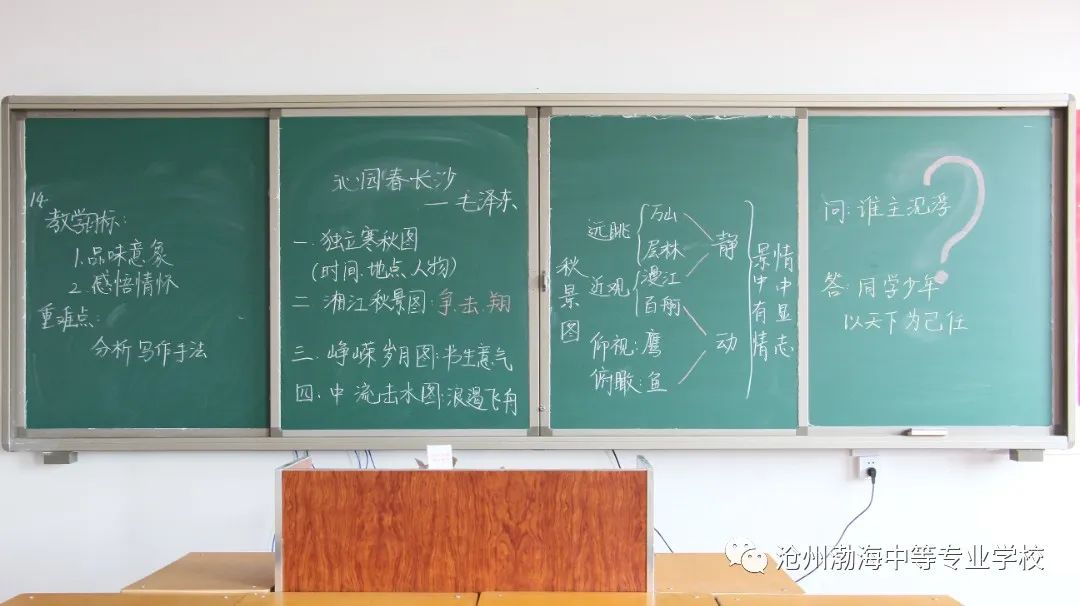 14.
教学目标:
1.品味意象
2.感悟情怀
重难点:
分析写作手法
沁园春长沙
—毛泽东
一.独立寒秋图
(时间.地点.人物)
二 湘江秋景图:争.击.翔
三.峥嵘岁月图:书生意气
四.中流击水图:浪遏飞舟
秋景图
远眺
万山
层林
近观
漫江
百舸
仰视:鹰
俯瞰:鱼
静
动
景中有情
情中显志
问:谁主沉浮
?
答:同学少年
以天下为己任
沧州渤海中等专业学校